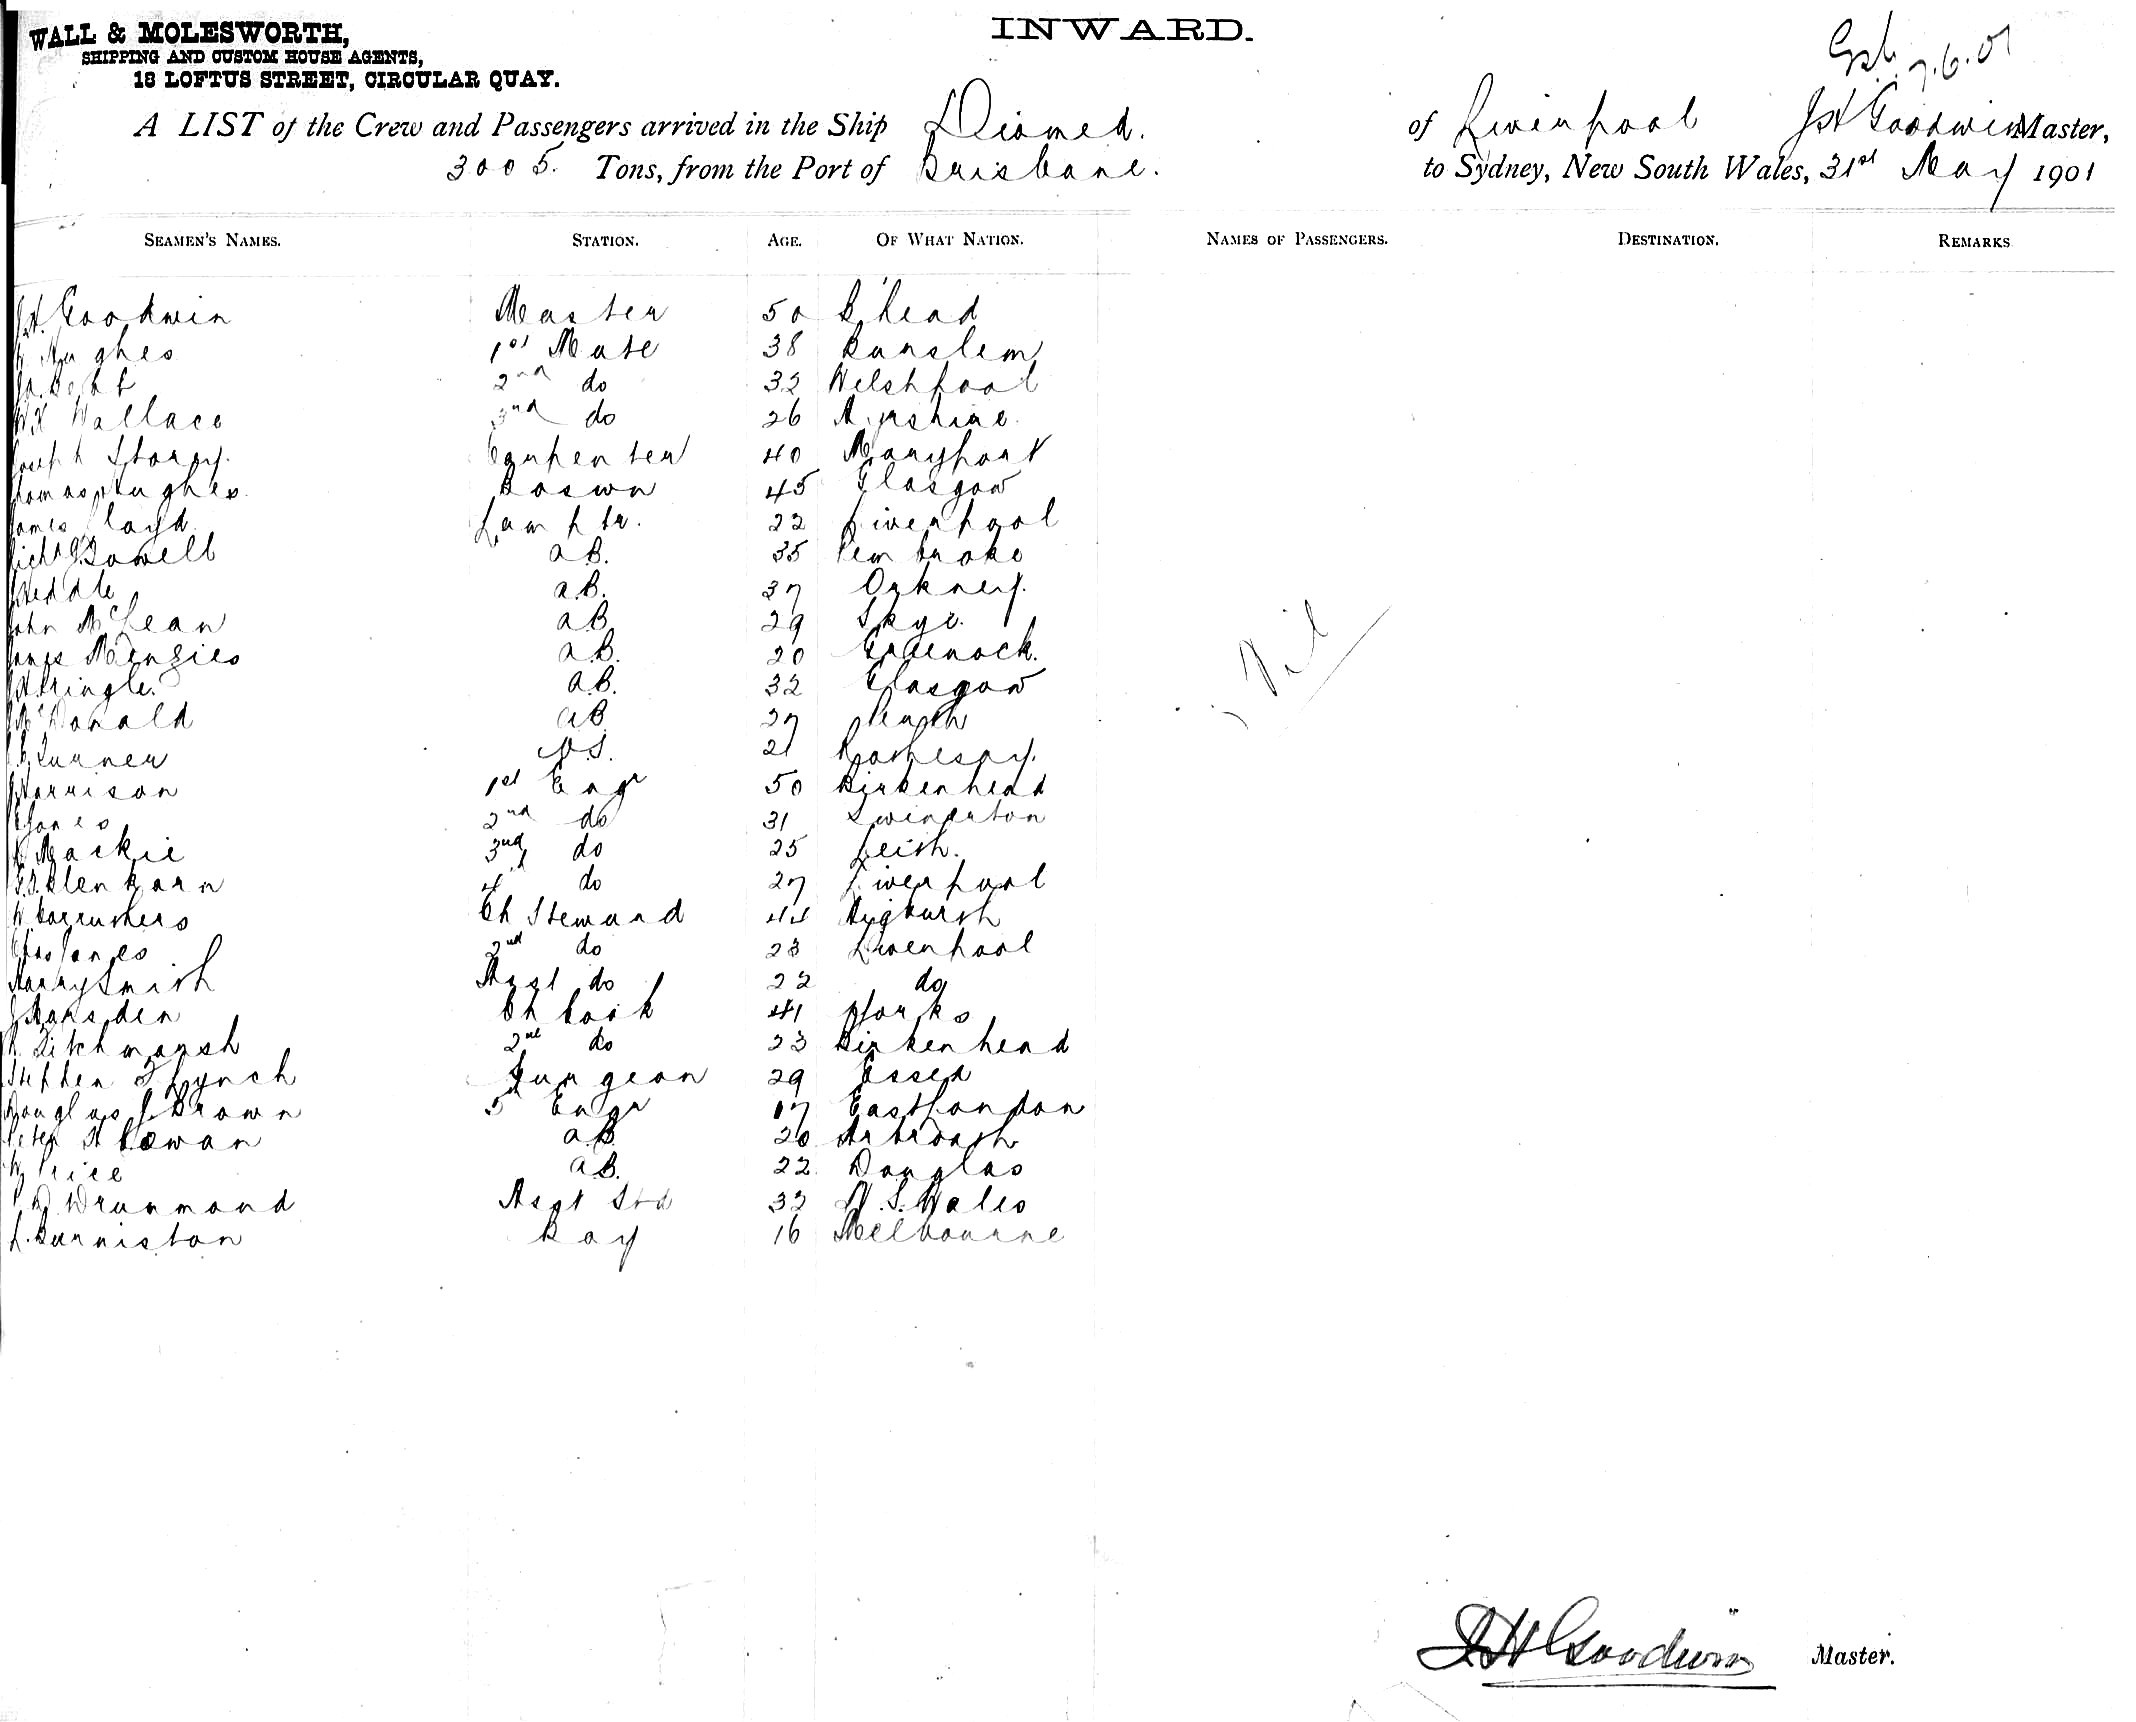 WALL & MOLESWORTH,
SHIPPING AND CUSTOM HOUSE AGENTS,
18 LOFTUS STREET, CIRCULAR QUAY.
INWARD.
7.6.01
A LIST of the Crew and Passengers arrived in the Ship Diomed. of Liverpool JH Goodwin Master,
3005. Tons, from the Port of Brisbane. to Sydney, New South Wales, 31st May 1901
SEAMEN'S NAMES. STATION. AGE. OF WHAT NATION. NAMES OF PASSENGERS. DESTINATION. REMARKS
JH. Goodwin Master 50 B'head
Hughes 1st Mate 38 Burslem
2nd do 32 Welshpool
WH Wallace 3rd do 26 Ayrshire.
Joseph Storey. Carpenter 40 Maryport
Thomas Hughes. Boswn 45 Glasgow
James Lloyd Lamptr. 22 Liverpool
Richd Powell a.B. 35 Pembroke
Heddle a.B. 37 Orkney.
John McLean aB 29 Skye.
James Menzies a.B. 20 Greenock.
Pringle. a.B. 32 Glasgow
McDonald aB 27 Perth
Turner O.S. 21 Rothesay.
Harrison 1st Engr 50 Birkenhead
Jones 2nd do 31 Swinerton
Mackie 3rd do 25 Leith.
Blenkarn 4th do 27 Liverpool
W Carruthers Ch Steward 44 Aigburth
Chas Jones 2nd do 23 Liverpool
Harry Smith Asst do 22 do
J Marsden Ch Cook 41 Yorks
Titchmarsh 2nd do 23 Birkenhead
Stephen Lynch Surgeon 29 Essex
Douglas J Brown 5th Engr 17 East London
Peter H Cowan a.B. 20 Arbroath
W Price a.B. 22. Douglas
D Drummond Asst Std 32 N.S.Wales
L. Burniston Boy 16 Melbourne
Nil
JH Goodwin Master.